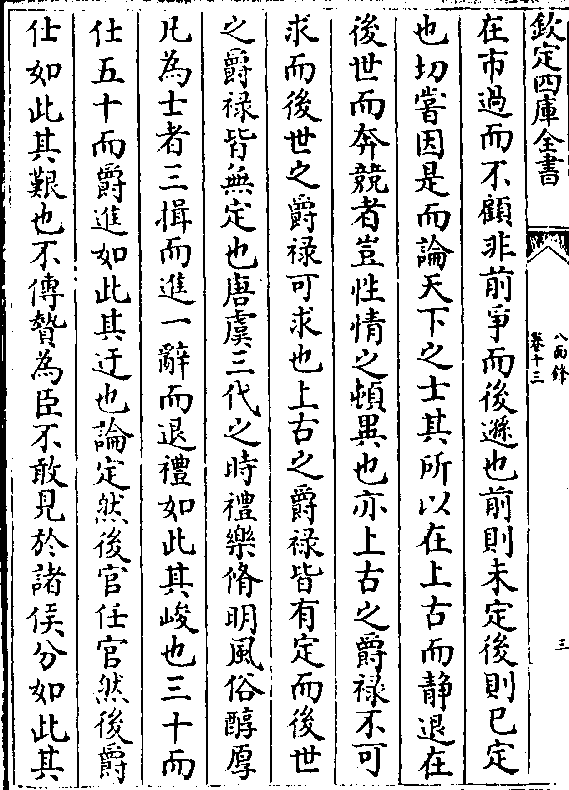 欽定四庫全書
八面鋒
卷十三
三
在市過而不顧非前爭而後遜也前則未定後則已定
也切嘗因是而論天下之士其所以在上古而静退在
後世而奔競者豈性情之頓異也亦上古之爵禄不可
求而後世之爵禄可求也上古之爵禄皆有定而後世
之爵禄皆無定也唐虞三代之時禮樂脩明風俗醇厚
凡為士者三揖而進一辭而退禮如此其峻也三十而
仕五十而爵進如此其迂也論定然後官任官然後爵
仕如此其艱也不傳贄為臣不敢見於諸侯分如此其